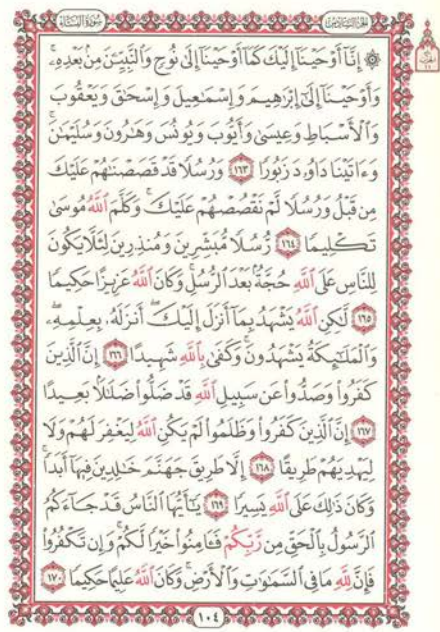 الجزء السادس
سورة النساء
۞ إِنَّا أَوْحَيْنَا إِلَيْكَ كَمَا أَوْحَيْنَا إِلَىٰ نُوحٍ وَالنَّبِيِّينَ مِنْ بَعْدِهِ ۚ
وَأَوْحَيْنَا إِلَىٰ إِبْرَاهِيمَ وَإِسْمَاعِيلَ وَإِسْحَاقَ وَيَعْقُوبَ
وَالْأَسْبَاطِ وَعِيسَىٰ وَأَيُّوبَ وَيُونُسَ وَهَارُونَ وَسُلَيْمَانَ ۚ
وَءَاتَيْنَا دَاوُودَ زَبُورًا ١٦٣ وَرُسُلًا قَدْ قَصَصْنَاهُمْ عَلَيْكَ
مِن قَبْلُ وَرُسُلًا لَّمْ نَقْصُصْهُمْ عَلَيْكَ ۚ وَكَلَّمَ اللَّهُ مُوسَىٰ
تَكْلِيمًا ١٦٤ رُّسُلًا مُّبَشِّرِينَ وَمُنذِرِينَ لِئَلَّا يَكُونَ
لِلنَّاسِ عَلَى اللَّهِ حُجَّةٌ بَعْدَ الرُّسُلِ ۚ وَكَانَ اللَّهُ عَزِيزًا حَكِيمًا
١٦٥ لَّٰكِنِ اللَّهُ يَشْهَدُ بِمَا أَنزَلَ إِلَيْكَ ۖ أَنزَلَهُ بِعِلْمِهِ ۖ
وَالْمَلَائِكَةُ يَشْهَدُونَ ۚ وَكَفَىٰ بِاللَّهِ شَهِيدًا ١٦٦ إِنَّ الَّذِينَ
كَفَرُوا وَصَدُّوا عَن سَبِيلِ اللَّهِ قَدْ ضَلُّوا ضَلَالًا بَعِيدًا
١٦٧ إِنَّ الَّذِينَ كَفَرُوا وَظَلَمُوا لَمْ يَكُنِ اللَّهُ لِيَغْفِرَ لَهُمْ وَلَا
لِيَهْدِيَهُمْ طَرِيقًا ١٦٨ إِلَّا طَرِيقَ جَهَنَّمَ خَالِدِينَ فِيهَا أَبَدًا ۚ
وَكَانَ ذَٰلِكَ عَلَى اللَّهِ يَسِيرًا ١٦٩ يَا أَيُّهَا النَّاسُ قَدْ جَاءَكُمُ
الرَّسُولُ بِالْحَقِّ مِن رَّبِّكُمْ فَآمِنُوا خَيْرًا لَّكُمْ ۚ وَإِن تَكْفُرُوا
فَإِنَّ لِلَّهِ مَا فِي السَّمَاوَاتِ وَالْأَرْضِ ۚ وَكَانَ اللَّهُ عَلِيمًا حَكِيمًا ١٧٠
١٠٤